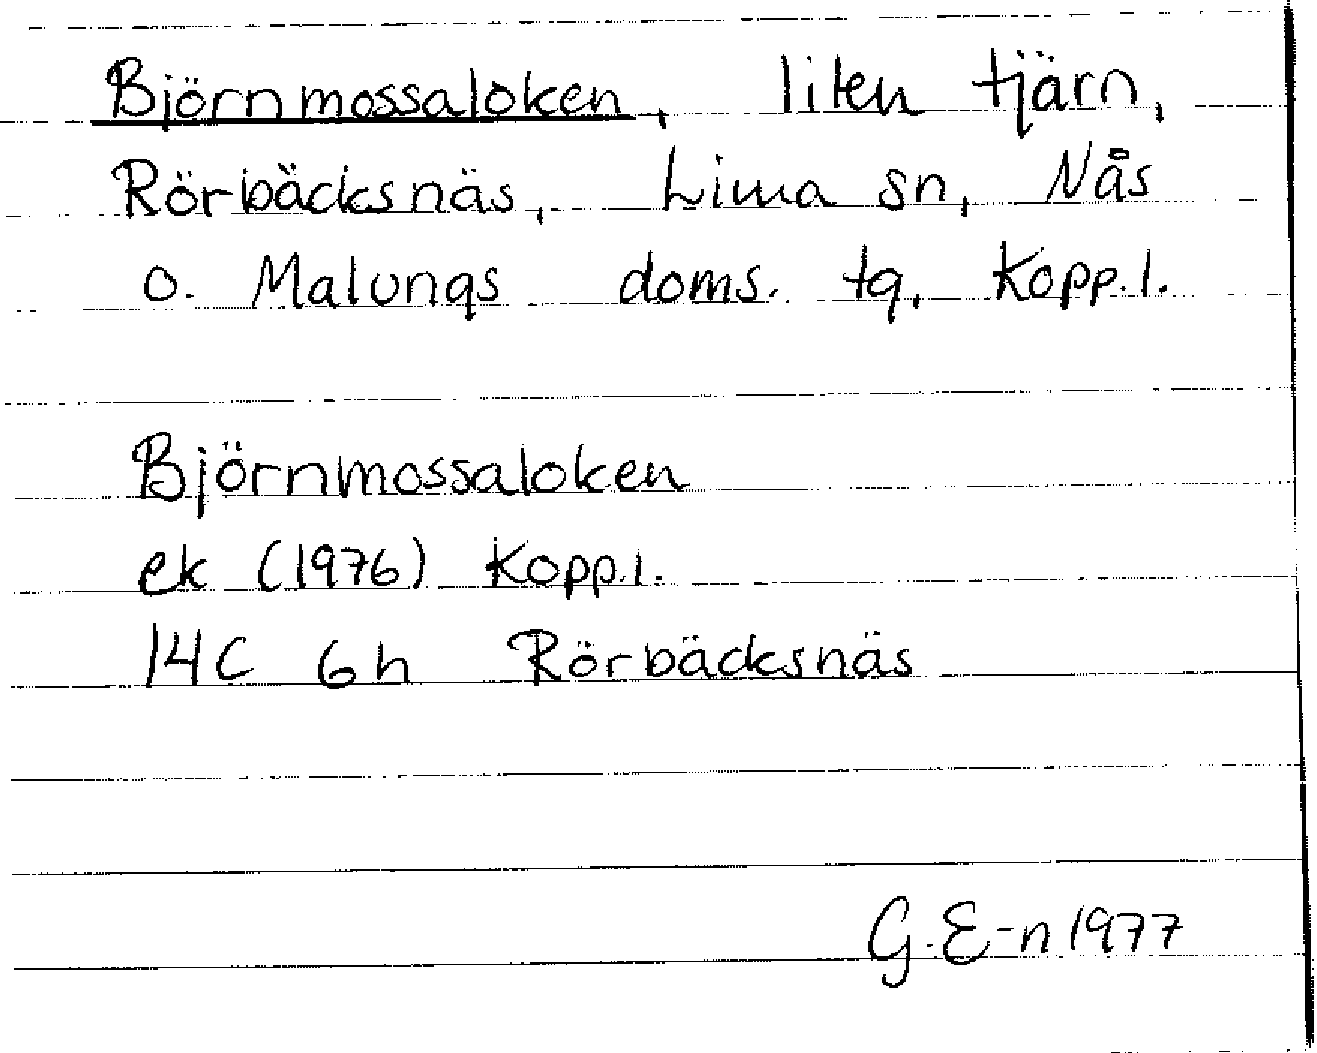 Björnmossaloken, liten tjärn,
Rörbäcksnäs, Lima sn, Nås
o. Malungs doms. tg, Kopp.l.
Björnmossaloken
ek (1976) Kopp.l.
14C 6h Rörbäcksnäs
G.E-n 1977